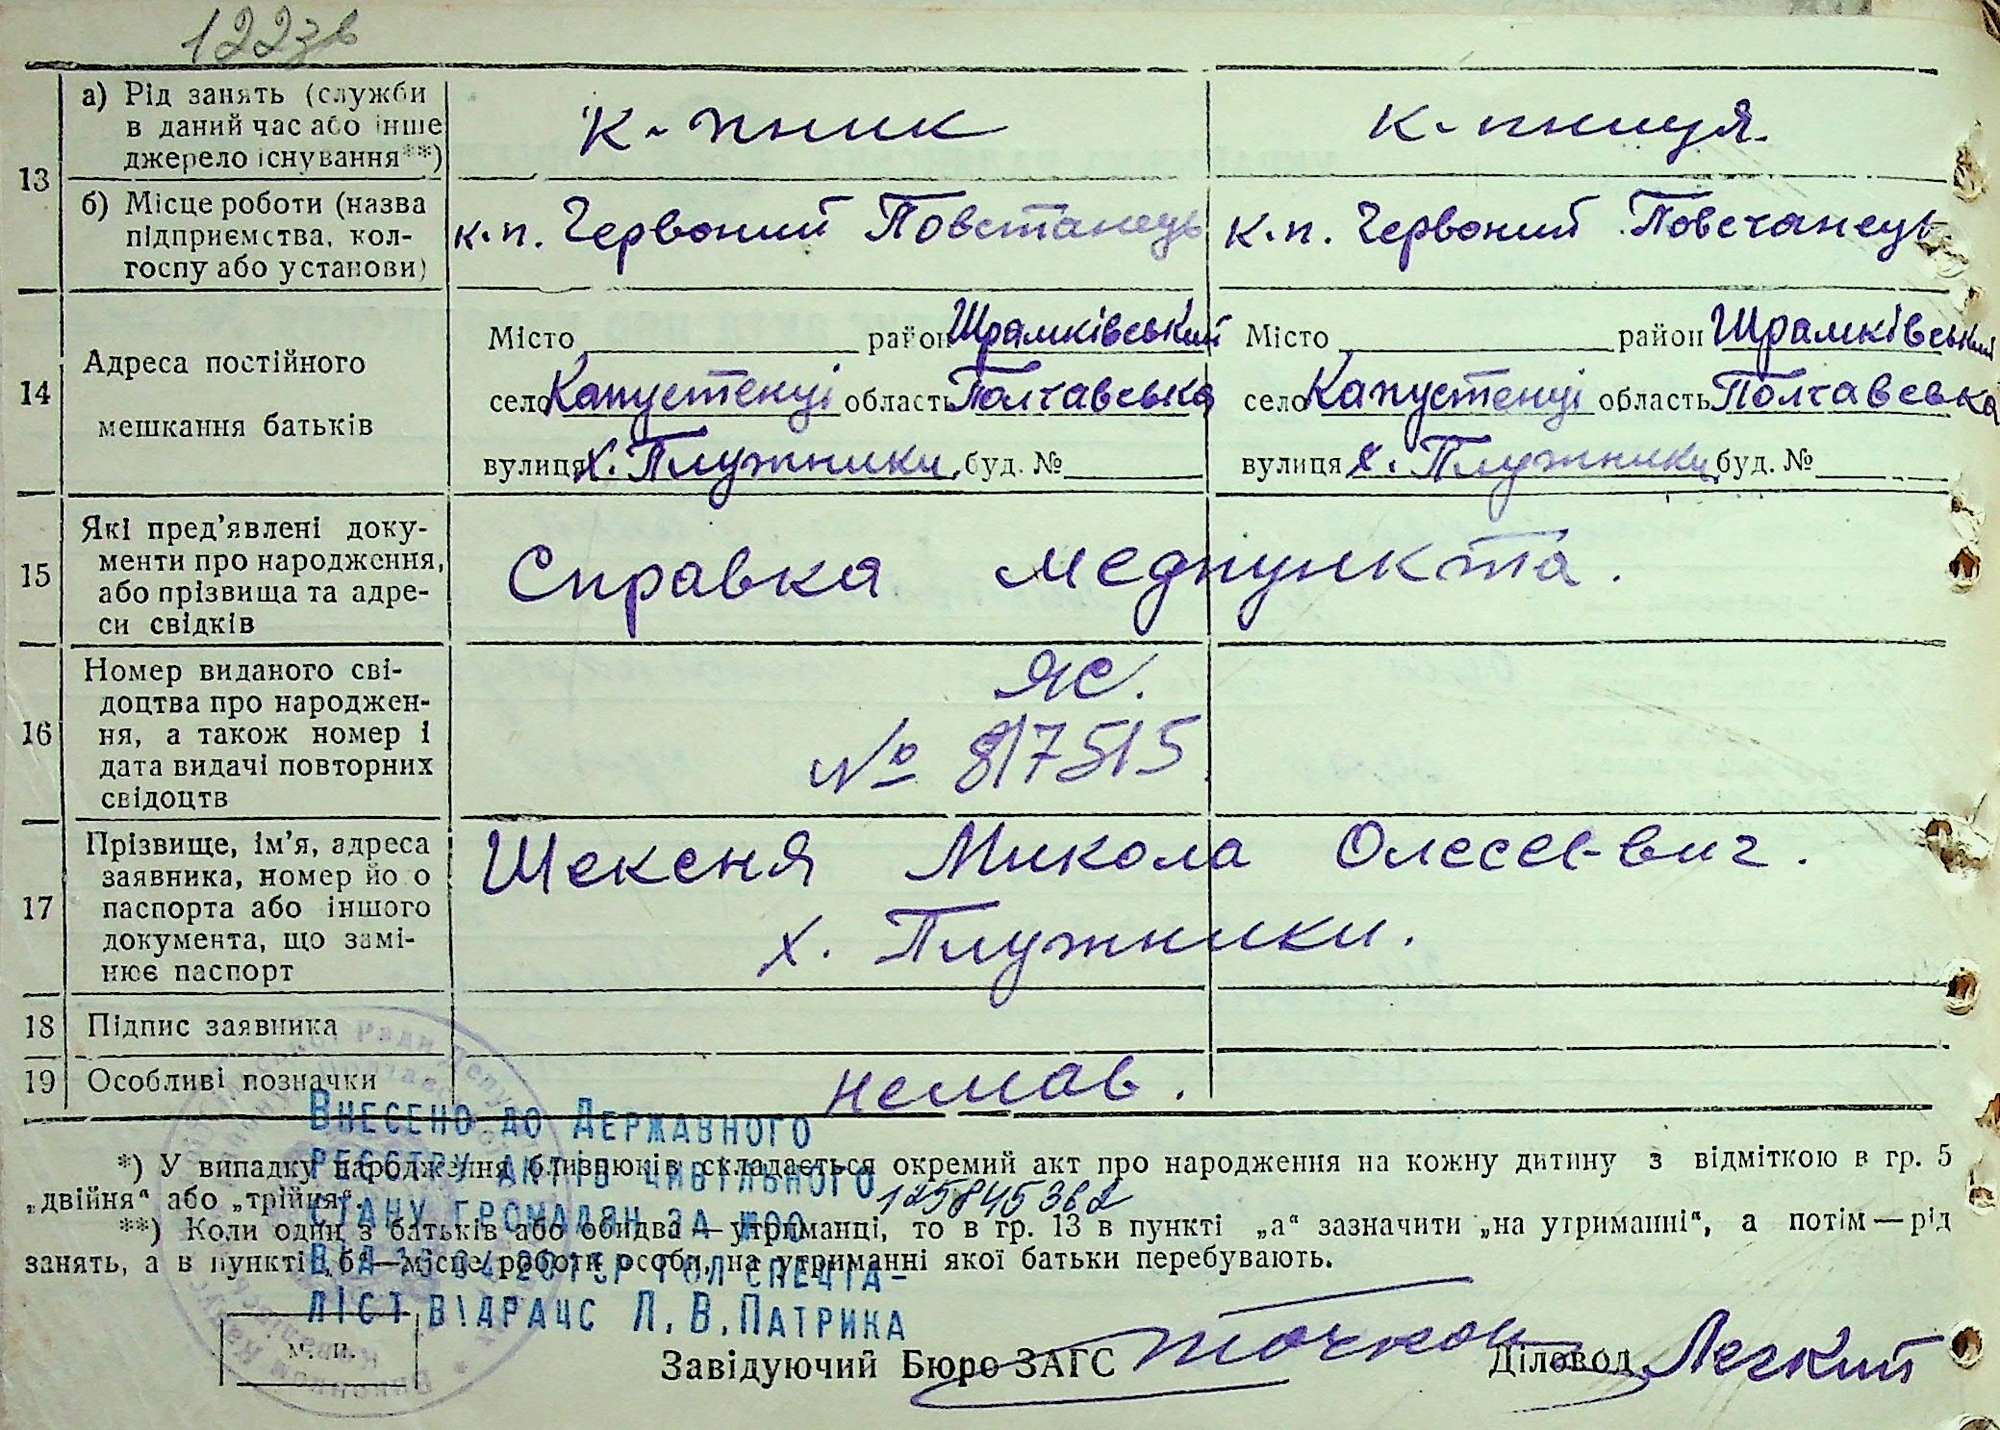 122зв
13
а) Рід занять (служби
в даний час або інше
джерело існування**)
к-пник
к-пниця.
б) Місце роботи (назва
підприємства, кол-
госпу або установи)
к.п. Червоний Повстанець
к.п. Червоний Повстанець
14
Адреса постійного
мешкання батьків
Місто район Шрамківський
село Капустенці область Полтавська
вулиця х. Плужники, буд. №
Місто район Шрамківський
село Капустенці область Полтавська
вулиця х. Плужники, буд. №
15
Які пред’явлені доку-
менти про народження,
або прізвища та адре-
си свідків
Справка медпункта.
16
Номер виданого сві-
доцтва про народжен-
ня, а також номер і
дата видачі повторних
свідоцтв
ЯС.
№ 817515
17
Прізвище, ім’я, адреса
заявника, номер йо о
паспорта або іншого
документа, що замі-
нює паспорт
Шексня Микола
х. Плужники.
18
Підпис заявника
19
Особливі позначки
немав.
Внесено до Державного
реєстру актів цивільного
стану громадян за №00
1258453в2
ліст відрацс Л. В. Патрика
*) У випадку народження близнюків складається окремий акт про народження на кожну дитину з відміткою в гр. 5
„двійня“ або „трійня“.
**) Коли один з батьків або обидва — утриманці, то в гр. 13 в пункті „а“ зазначити „на утриманні“, а потім — рід
занять, а в пункті „б“ — місце роботи особи, на утриманні якої батьки перебувають.
м. п.
Завідуючий Бюро ЗАГС
Діловод Легкий